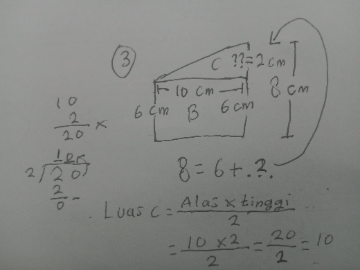 3
C ??=2 cm
10 cm
8 cm
6 cm B 6 cm
10
2
20 x
10
2 20
2
0 -
8 = 6 + .?.
Luas C = Alas x tinggi
2
= 10 x 2 = 20 = 10
2 2